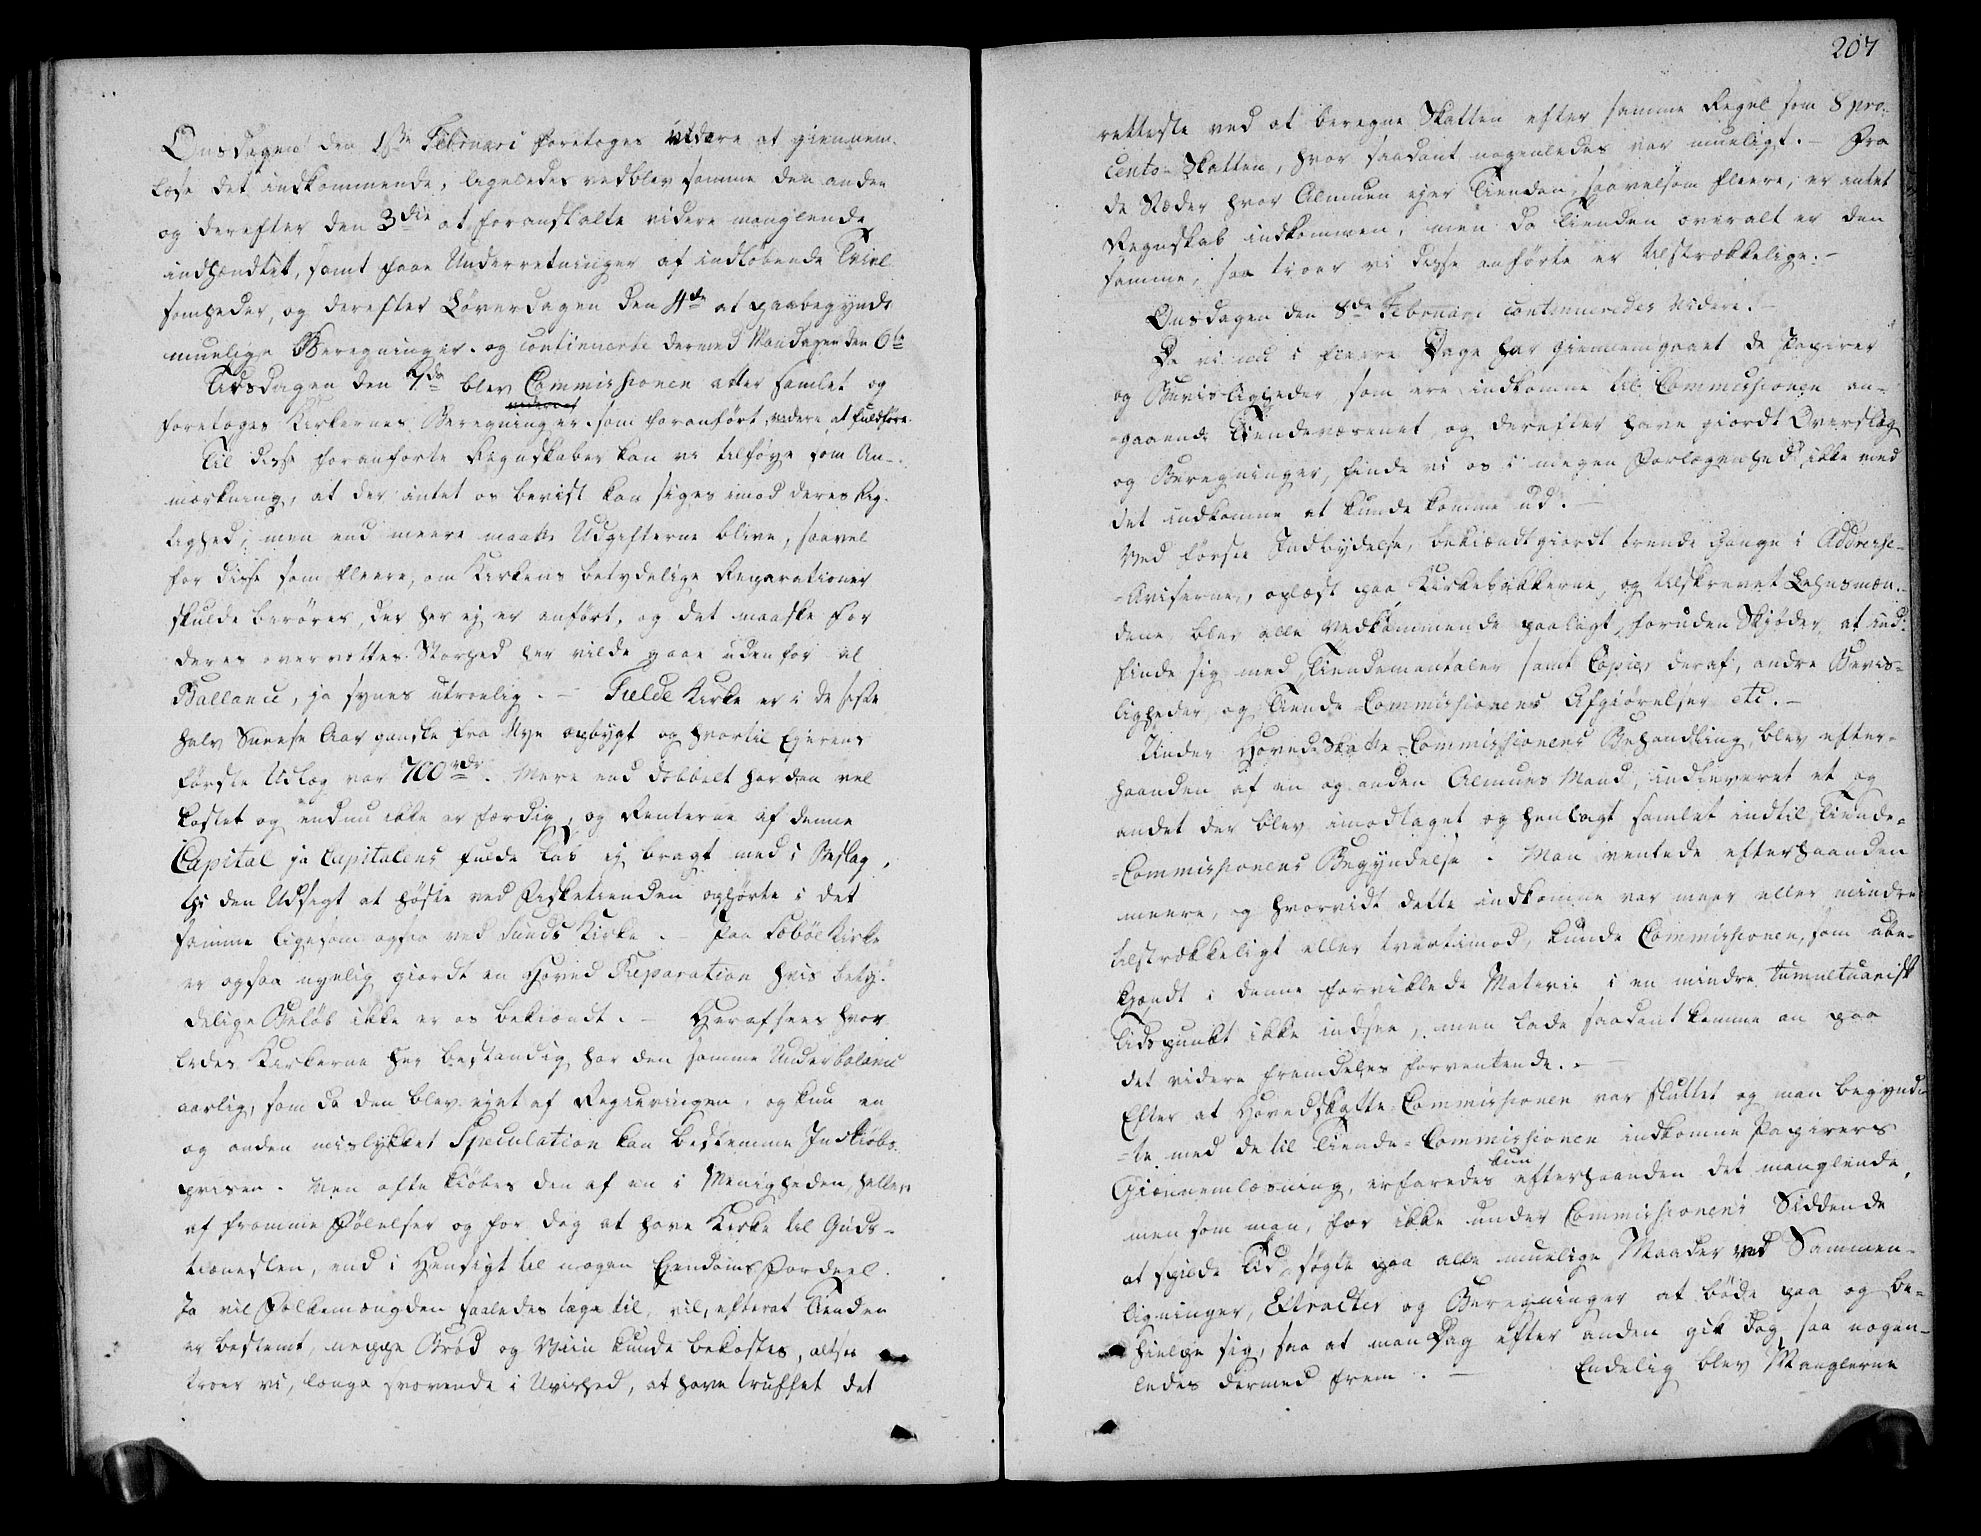 Onsdagen den 1ste Februari foretoges videre at giennem-
læse det indkommende, ligeledes vedblev samme den anden
og derefter den 3die at foranstalte videre manglende
indhændtet, samt faae Underretninger af indløbende Tvivl-
somheder, og derefter Løverdagen den 4de at paabegynde
muelige Beregninger og continuerte dermed Mandagen den 6te
Tidsdagen den 7de blev Commissionen atter samlet og
foretoges Kirkernes Beregninger som foranført videre at fuldføre.
Til disse foranførte Regnskaber kan vi tilføye som An-
mærkning, at der intet os bevist kan siges imod deres Rig-
tighed; men end meere maatte Udgifterne blive, saavel
for disse som fleere, om Kirkens betydelige Reparationer
skulde berøres, der her ej er anført, og det maaske for
deres overvættes Storhed her vilde gaae udenfor al
Ballance, ja synes utroelig. - Fielde Kirke er i de sidste
halv Snese Aar ganske fra Nye opbygt og hvortil Ejerens
første Udlæg var 700 rdr. Mere end dobbelt har den vel
kostet og endnu ikke er færdig, og Renterne af denne
Capital ja Capitalens fulde Tab ej bragt med i Beslag,
thi den Udsigt at høste ved Fisketienden ophørte i det
samme ligesom ogsaa ved Sunds Kirke. - Paa Fobøl Kirke
er ogsaa nyelig giordt en Hoved Reparation hvis bety-
delige Beløb ikke er os bekiændt. - Heraf sees hvor-
ledes Kirkerne her bestandig har den samme Underbalance
aarlig, som da den blev ejet af Regieringen, og kun en
og anden mislykket Speculation kan bestemme Indkiøbs-
prisen. Men ofte kiøbes den af en i Menigheden, heller
af fromme Følelser og for dog at have Kirke til Guds-
tienesten, end i Hensigt til nogen Ejendoms Fordeel.
Ja vil Folkemængden saaledes tage til, vil, efterat Tienden
er bestemt, neppe Brød og Viin kunde bekostes, altsaa
troer vi, længe svævende i Uvished, at have truffet det
207
retteste ved at beregne Skatten efter samme Regel som 8 pro-
cento-Skatten, hvor saadant nogenledes var mueligt. - Fra
de Stæder hvor Almuen ejer Tienden, saavelsom fleere, er intet
Regnskab indkommen, men da Tienden overalt er den
samme, saa troer vi disse anførte er tilstrækkelige. -
Onsdagen den 8de Februari continueredes videre. -
Da vi nu i fleere Dage har giennemgaaet de Papirer
og Beviisligheder som ere indkomne til Commissionen an-
-gaaende Tiendevæsenet, og derefter have giordt Overslag
og Beregninger, finde vi os i megen Forlegenhed, ikke med
det indkomne at kunde komme ud. -
Ved første Indbydelse, bekiændtgiordt trende Gange i Addresse-
-Aviserne, oplæst paa Kirkebakkerne, og tilskrevet Lehnsmæn-
dene blev alle Vedkommende paalagt, foruden Skjøder, at ind-
finde sig med Tiendemantaler samt Copier deraf, andre Bevis-
ligheder og Tiende Commissionens Afgiørelser etc. -
Under Hoved-Skatte-Commissionens Behandling, blev efter-
haanden af en og anden Almues Mand, indleveret et og
andet der blev imodtaget og henlagt samlet indtil Tiende-
-Commissionens Begyndelse. Man ventede efterhaanden
meere, og hvorvidt dette indkomne var meer eller mindre
tilstrækkeligt eller tvertimod, kunde Commissionen, som ube-
kjændt i denne forviklede Materie i en mindre tumultuarisk
Tidspunkt ikke indsee, men lade saadant komme an paa
det videre fremdeles forventende. -
Efter at Hovedskatte-Commissionen var sluttet og man begynd-
-te med de til Tiende-Commissionen indkomne Papirers
Giennemlæsning, erfaredes kun efterhaanden det manglende,
men som man, for ikke under Commissionens Siddende
at spilde Tid, søgte paa alle muelige Maader ved Sammen-
ligninger, Extracter og Beregninger at bøde paa og be-
hielpe sig, saa at man Dag efter anden gik dog saa nogen-
ledes dermed frem. - Endelig blev Manglerne